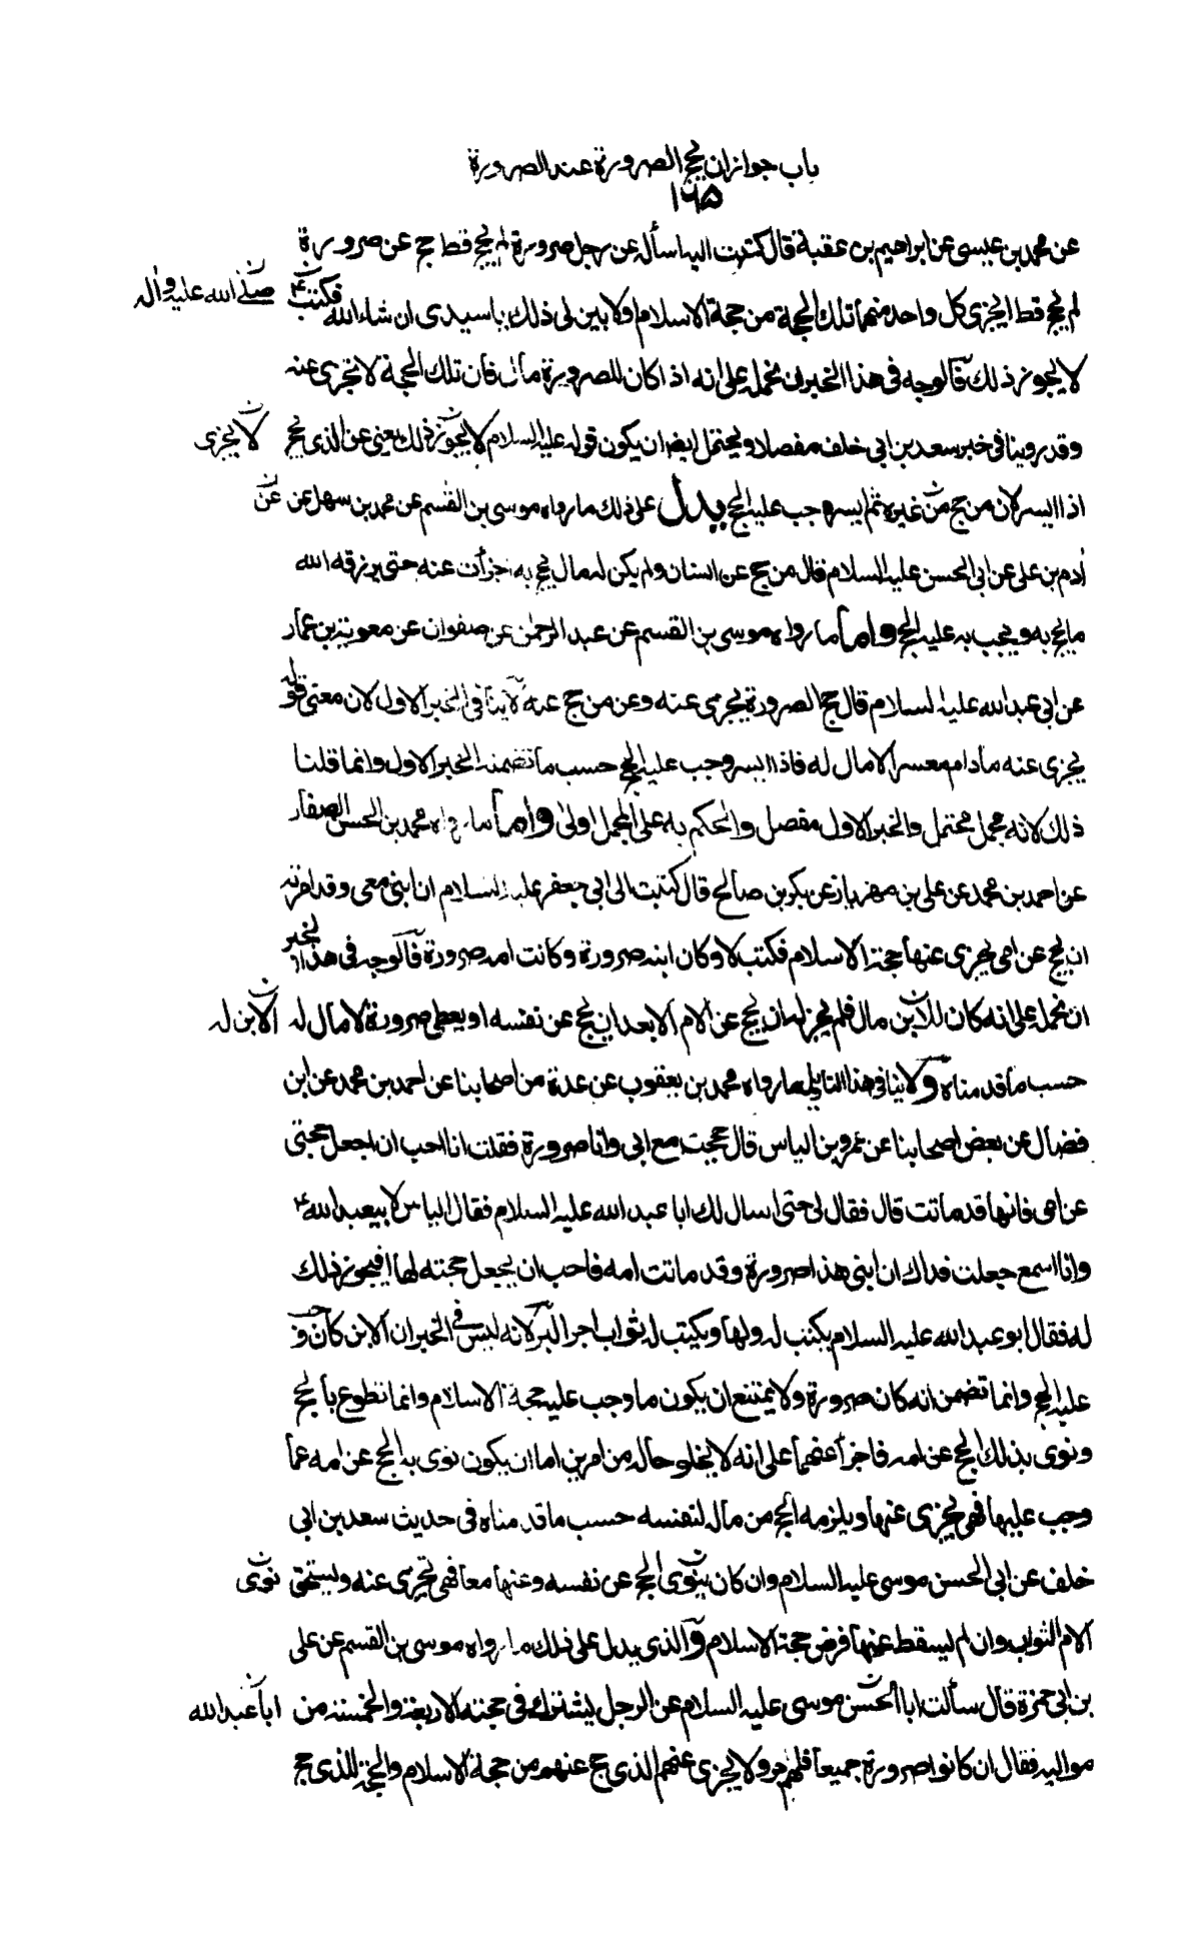 باب جواز ان يحج الصرورة عند الصرورة
١٦٥
عن محمد بن عيسى عن ابراهيم بن عقبة قال كتبت اليه اسأله عن رجل صرورة لم يحج قط حج عن صرورة
لم يحج قط ايجزى كل واحد منهما تلك الحجة من حجة الاسلام او لا بين لى ذلك يا سيدى ان شاء الله فكتب ع صلى الله عليه واله
لا يجوز ذلك فالوجه فى هذا الخبر ان نحمله على انه اذا كان للصرورة مال فان تلك الحجة لا تجزى عنه
وقد روينا فى خبر سعد بن ابى خلف مفصلا ويحتمل ايضا ان يكون قوله عليه السلام لا يجوز ذلك يعنى عن الذى يحج لا يجزى
اذا ايسر لان من حج من غيره ثم ايسر وجب عليه الحج يدل على ذلك ما رواه موسى بن القسم عن محمد بن سهل عن عن
ادم بن على عن ابى الحسن عليه السلام قال من حج عن انسان ولم يكن له مال يحج به اجزأت عنه حتى يرزقه الله
ما يحج به ويجب به عليه الحج واما ما رواه موسى بن القسم عن عبد الرحمن عن صفوان عن معوية بن عمار
عن ابى عبد الله عليه السلام قال حج الصرورة يجزى عنه وعن من حج عنه لا ينافى الخبر الاول لان معنى قوله
يجزى عنه مادام معسرا لا مال له فاذا ايسر وجب عليه الحج حسب ما تضمنه الخبر الاول وانما قلنا
ذلك لانه مجمل محتمل والخبر الاول مفصل والحكم به على المجمل اولى واما ما رواه محمد بن الحسن الصفار
عن احمد بن محمد عن على بن مهزيار عن بكر بن صالح قال كتبت الى ابى جعفر عليه السلام ان ابنى معى وقد امرته
ان يحج عن امى يجزى عنها حجة الاسلام فكتب لا وكان ابنه صرورة وكانت امه صرورة فالوجه فى هذا الخبر
ان نحمله على انه كان للابن مال فلم يجز له ان يحج عن الام الا بعد ان يحج عن نفسه او يعطى صرورة لا مال له الابن له
حسب ما قدمناه ولا ينافى هذا التاويل ما رواه محمد بن يعقوب عن عدة من اصحابنا عن احمد بن محمد عن ابن
فضال عن بعض اصحابنا عن عمرو بن الياس قال حججت مع ابى وانا صرورة فقلت انا احب ان اجعل حجتى
عن امى فانها قد ماتت قال فقال لى حتى اسال لك ابا عبد الله عليه السلام فقال الياس لابيعبد الله ع
وانا اسمع جعلت فداك ان ابنى هذا صرورة وقد ماتت امه فاحب ان يجعل حجته لها افيجوز ذلك
له فقال ابو عبد الله عليه السلام يكتب له ولها ويكتب له ثواب اجر البر لانه ليس فى الخبر ان الابن كان وجب
عليه الحج وانما تضمن انه كان صرورة ولا يمتنع ان يكون ما وجب عليه حجة الاسلام وانما تطوع بالحج
ونوى بذلك الحج عن امه فاجزأ عنهما على انه لا يخلو حاله من امرين اما ان يكون نوى به الحج عن امه عما
وجب عليها فهى يجزى عنها ويلزمه الحج من ماله لنفسه حسب ما قدمناه فى حديث سعد بن ابى
خلف عن ابى الحسن موسى عليه السلام وان كان ينوى الحج عن نفسه وعنها معا فهى تجزى عنه وتستحق نوى
الام الثواب وان لم يسقط عنها فرض حجة الاسلام والذى يدل على ذلك ما رواه موسى بن القسم عن على
بن ابى حمزة قال سألت ابا الحسن موسى عليه السلام عن الرجل يشترك فى حجته الاربعة والخمسة من ابا عبد الله
مواليه فقال ان كانوا صرورة جميعا فلهم اجر ولا يجزى عنهم الذى حج عنهم من حجة الاسلام والحجة للذى حج